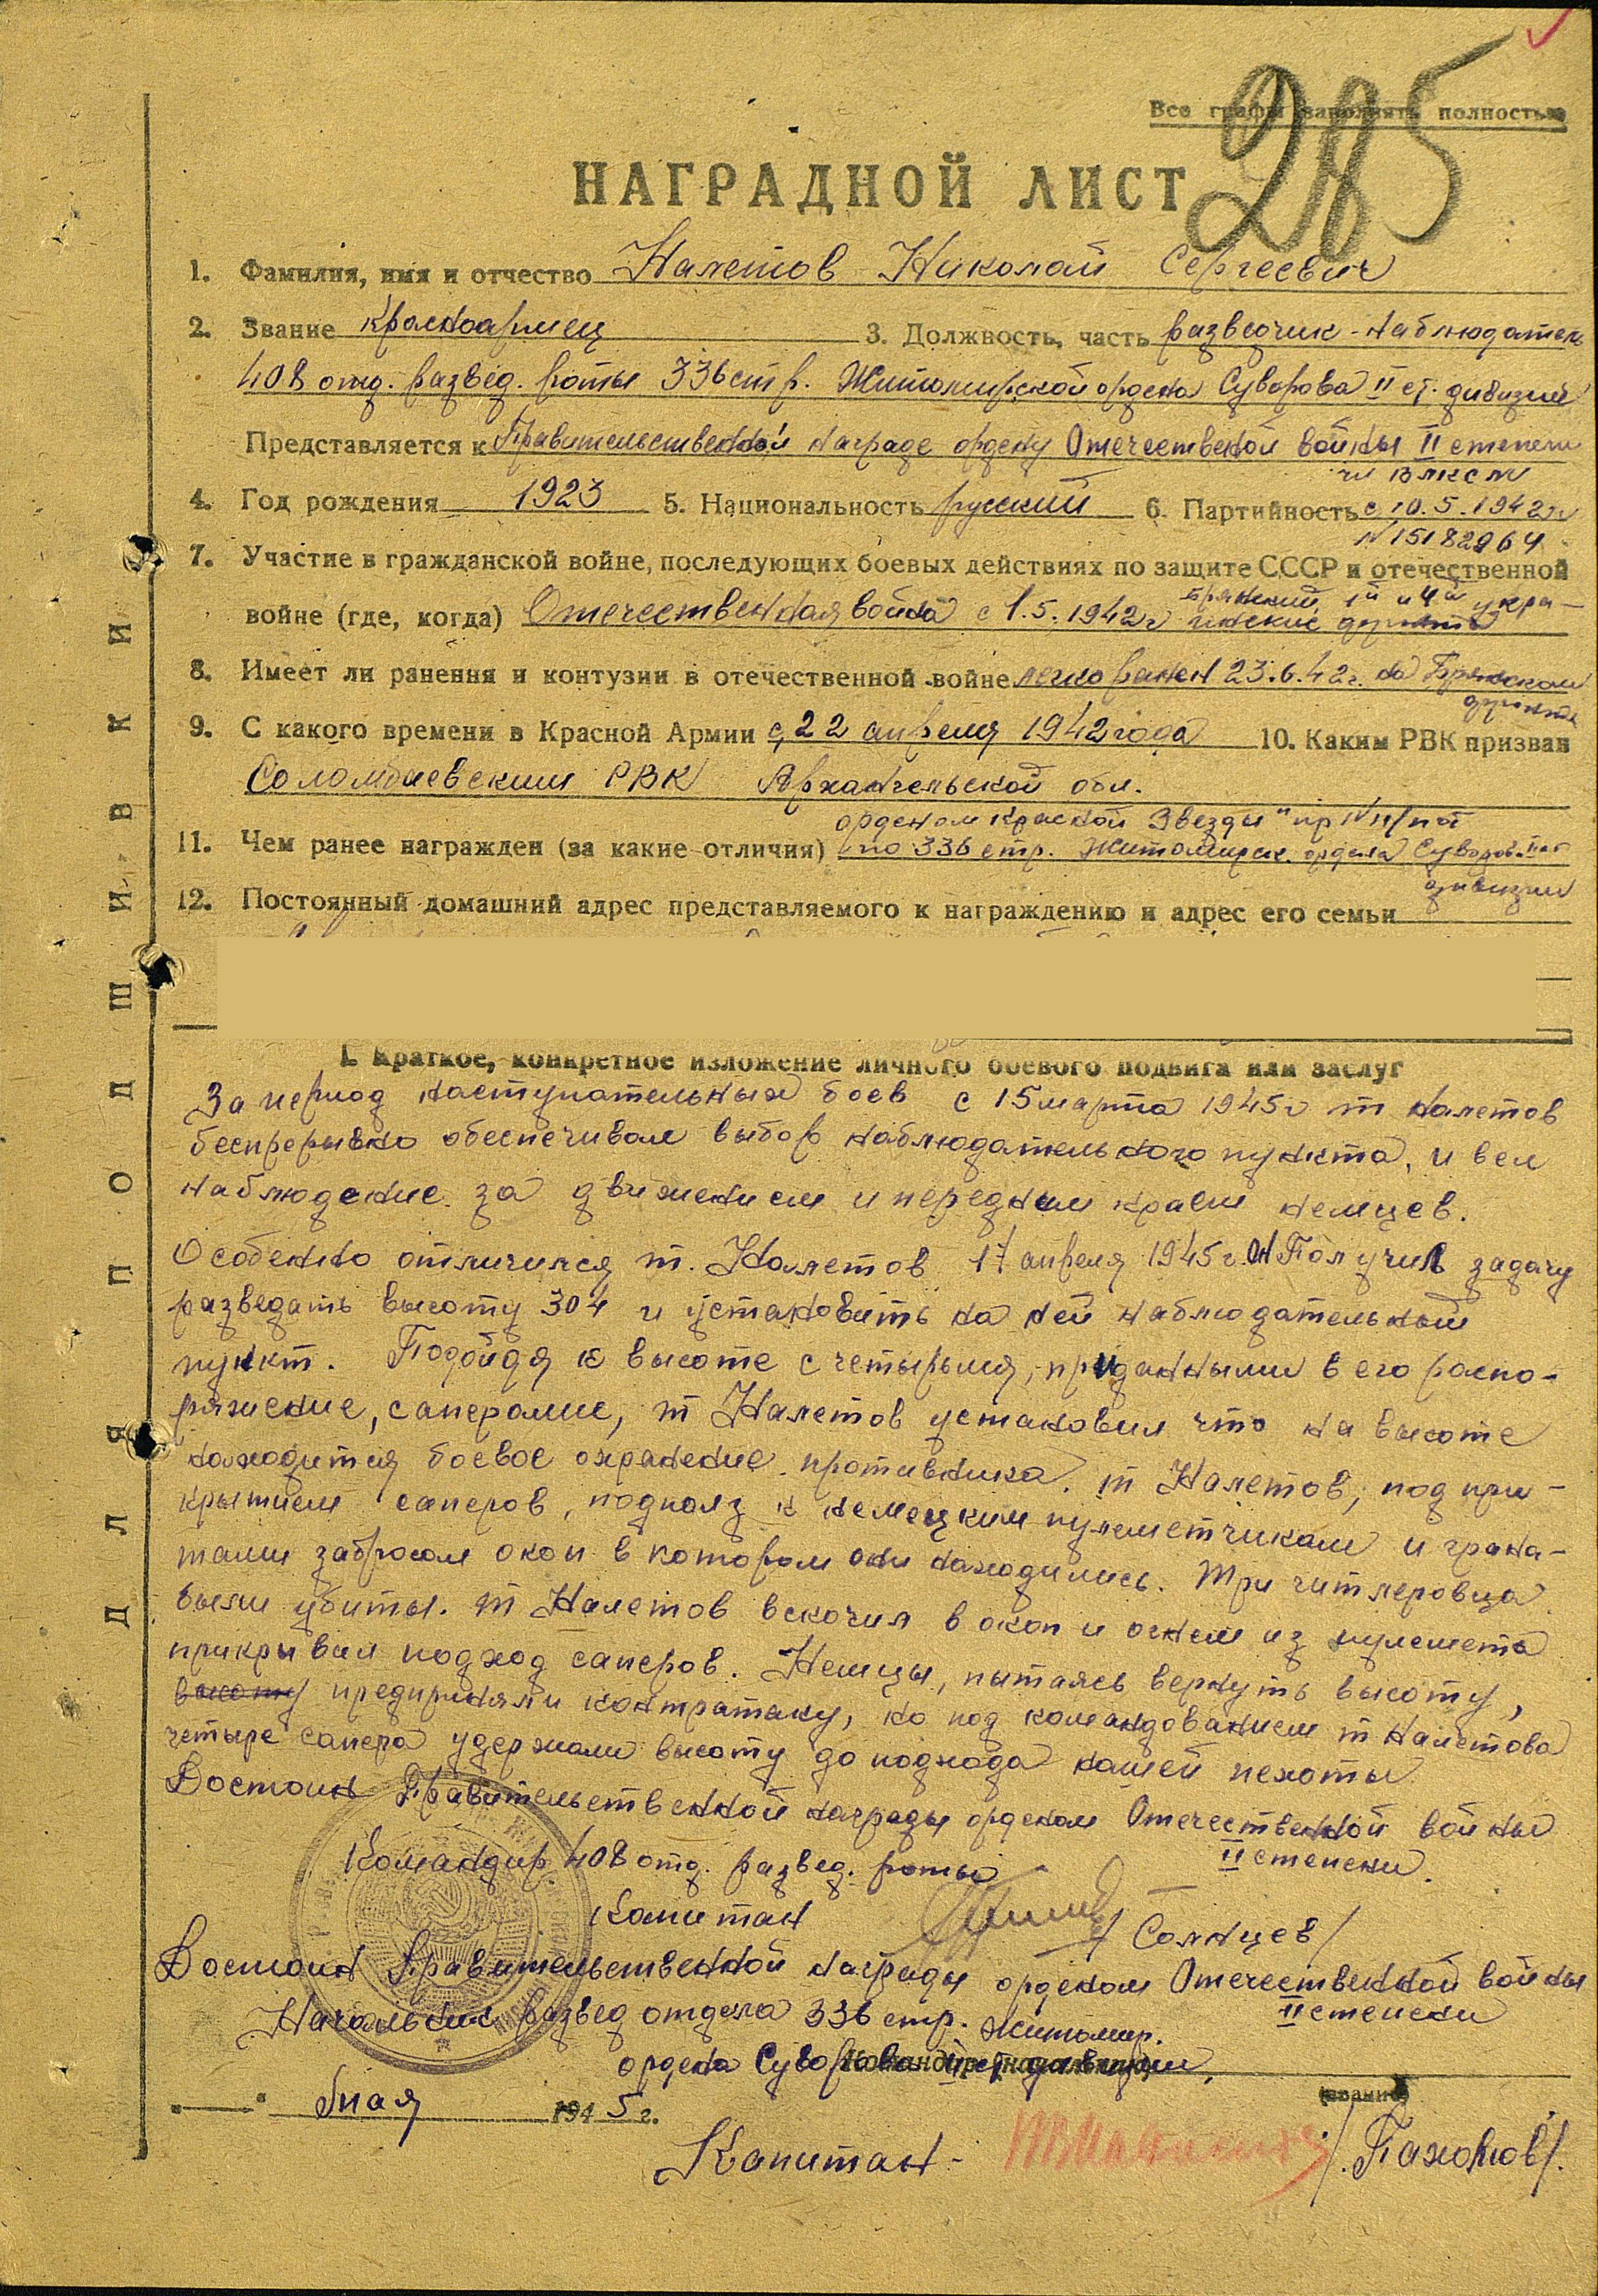 Все графы заполнять полностью
285
НАГРАДНОЙ ЛИСТ
1. Фамилия, имя и отчество Налетов Николай Сергеевич
2. Звание красноармец 3. Должность, часть разведчик-наблюдатель
408 отд. развед. роты 336 стр. Житомирской ордена Суворова II ст. дивизии
Представляется к Правительственной награде ордену Отечественой войны II степени
чл ВЛКСМ
4. Год рождения 1923 5. Национальность русский 6. Партийность с 10.5.1942 г
№ 15182964
7. Участие в гражданской войне, последующих боевых действиях по защите СССР и отечественной
Брянский, 1й и 4й укра-
войне (где, когда) Отечественная война с 1.5.1942 г инские фронты
8. Имеет ли ранения и контузии в отечественной войне легко ранен 23.6.42 г. на Брянском
фронте
9. С какого времени в Красной Армии с 22 апреля 1942 года 10. Каким РВК призван
Соломбаевским РВК Архангельской обл.
орденом Красной Звезды" пр №
11. Чем ранее награжден (за какие отличия) по 336 стр. Житомирск. ордена Суворова II ст
дивизии
12. Постоянный домашний адрес представляемого к награждению и адрес его семьи
I. Краткое, конкретное изложение личного боевого подвига или заслуг
За период наступательных боев с 15 марта 1945 г т Налетов
беспрерывно обеспечивал выбор наблюдательного пункта, и вел
наблюдение за движением и передним краем немцев.
Особенно отличился т. Налетов 17 апреля 1945 г. Он Получил задачу
разведать высоту 304 и установить на ней наблюдательный
пункт. Подойдя к высоте с четырьмя, приданными в его распо-
ряжение, саперами, т Налетов установил что на высоте
находится боевое охранение противника. т Налетов, под при-
крытием саперов, подполз к немецким пулеметчикам и грана-
тами забросал окоп в котором они находились. Три гитлеровца
были убиты. т Налетов вскочил в окоп и огнем из пулемета
прикрывал подход саперов. Немцы, пытаясь вернуть высоту,
высоту предприняли контратаку, но под командованием т Налетова
четыре сапера удержали высоту до подхода нашей пехоты.
Достоин Правительственной награды орденом Отечественной войны
II степени.
Командир 408 отд. развед. роты
Капитан /Солнцев/
Достоин Правительственной награды орденом Отечественной войны
II степени
Начальник развед отдела 336 стр. Житомир.
ордена Суворова II ст дивизии,
(звание)
"—" мая 1945 г.
Капитан - /Пахомов/.
ДЛЯ ПОДШИВКИ